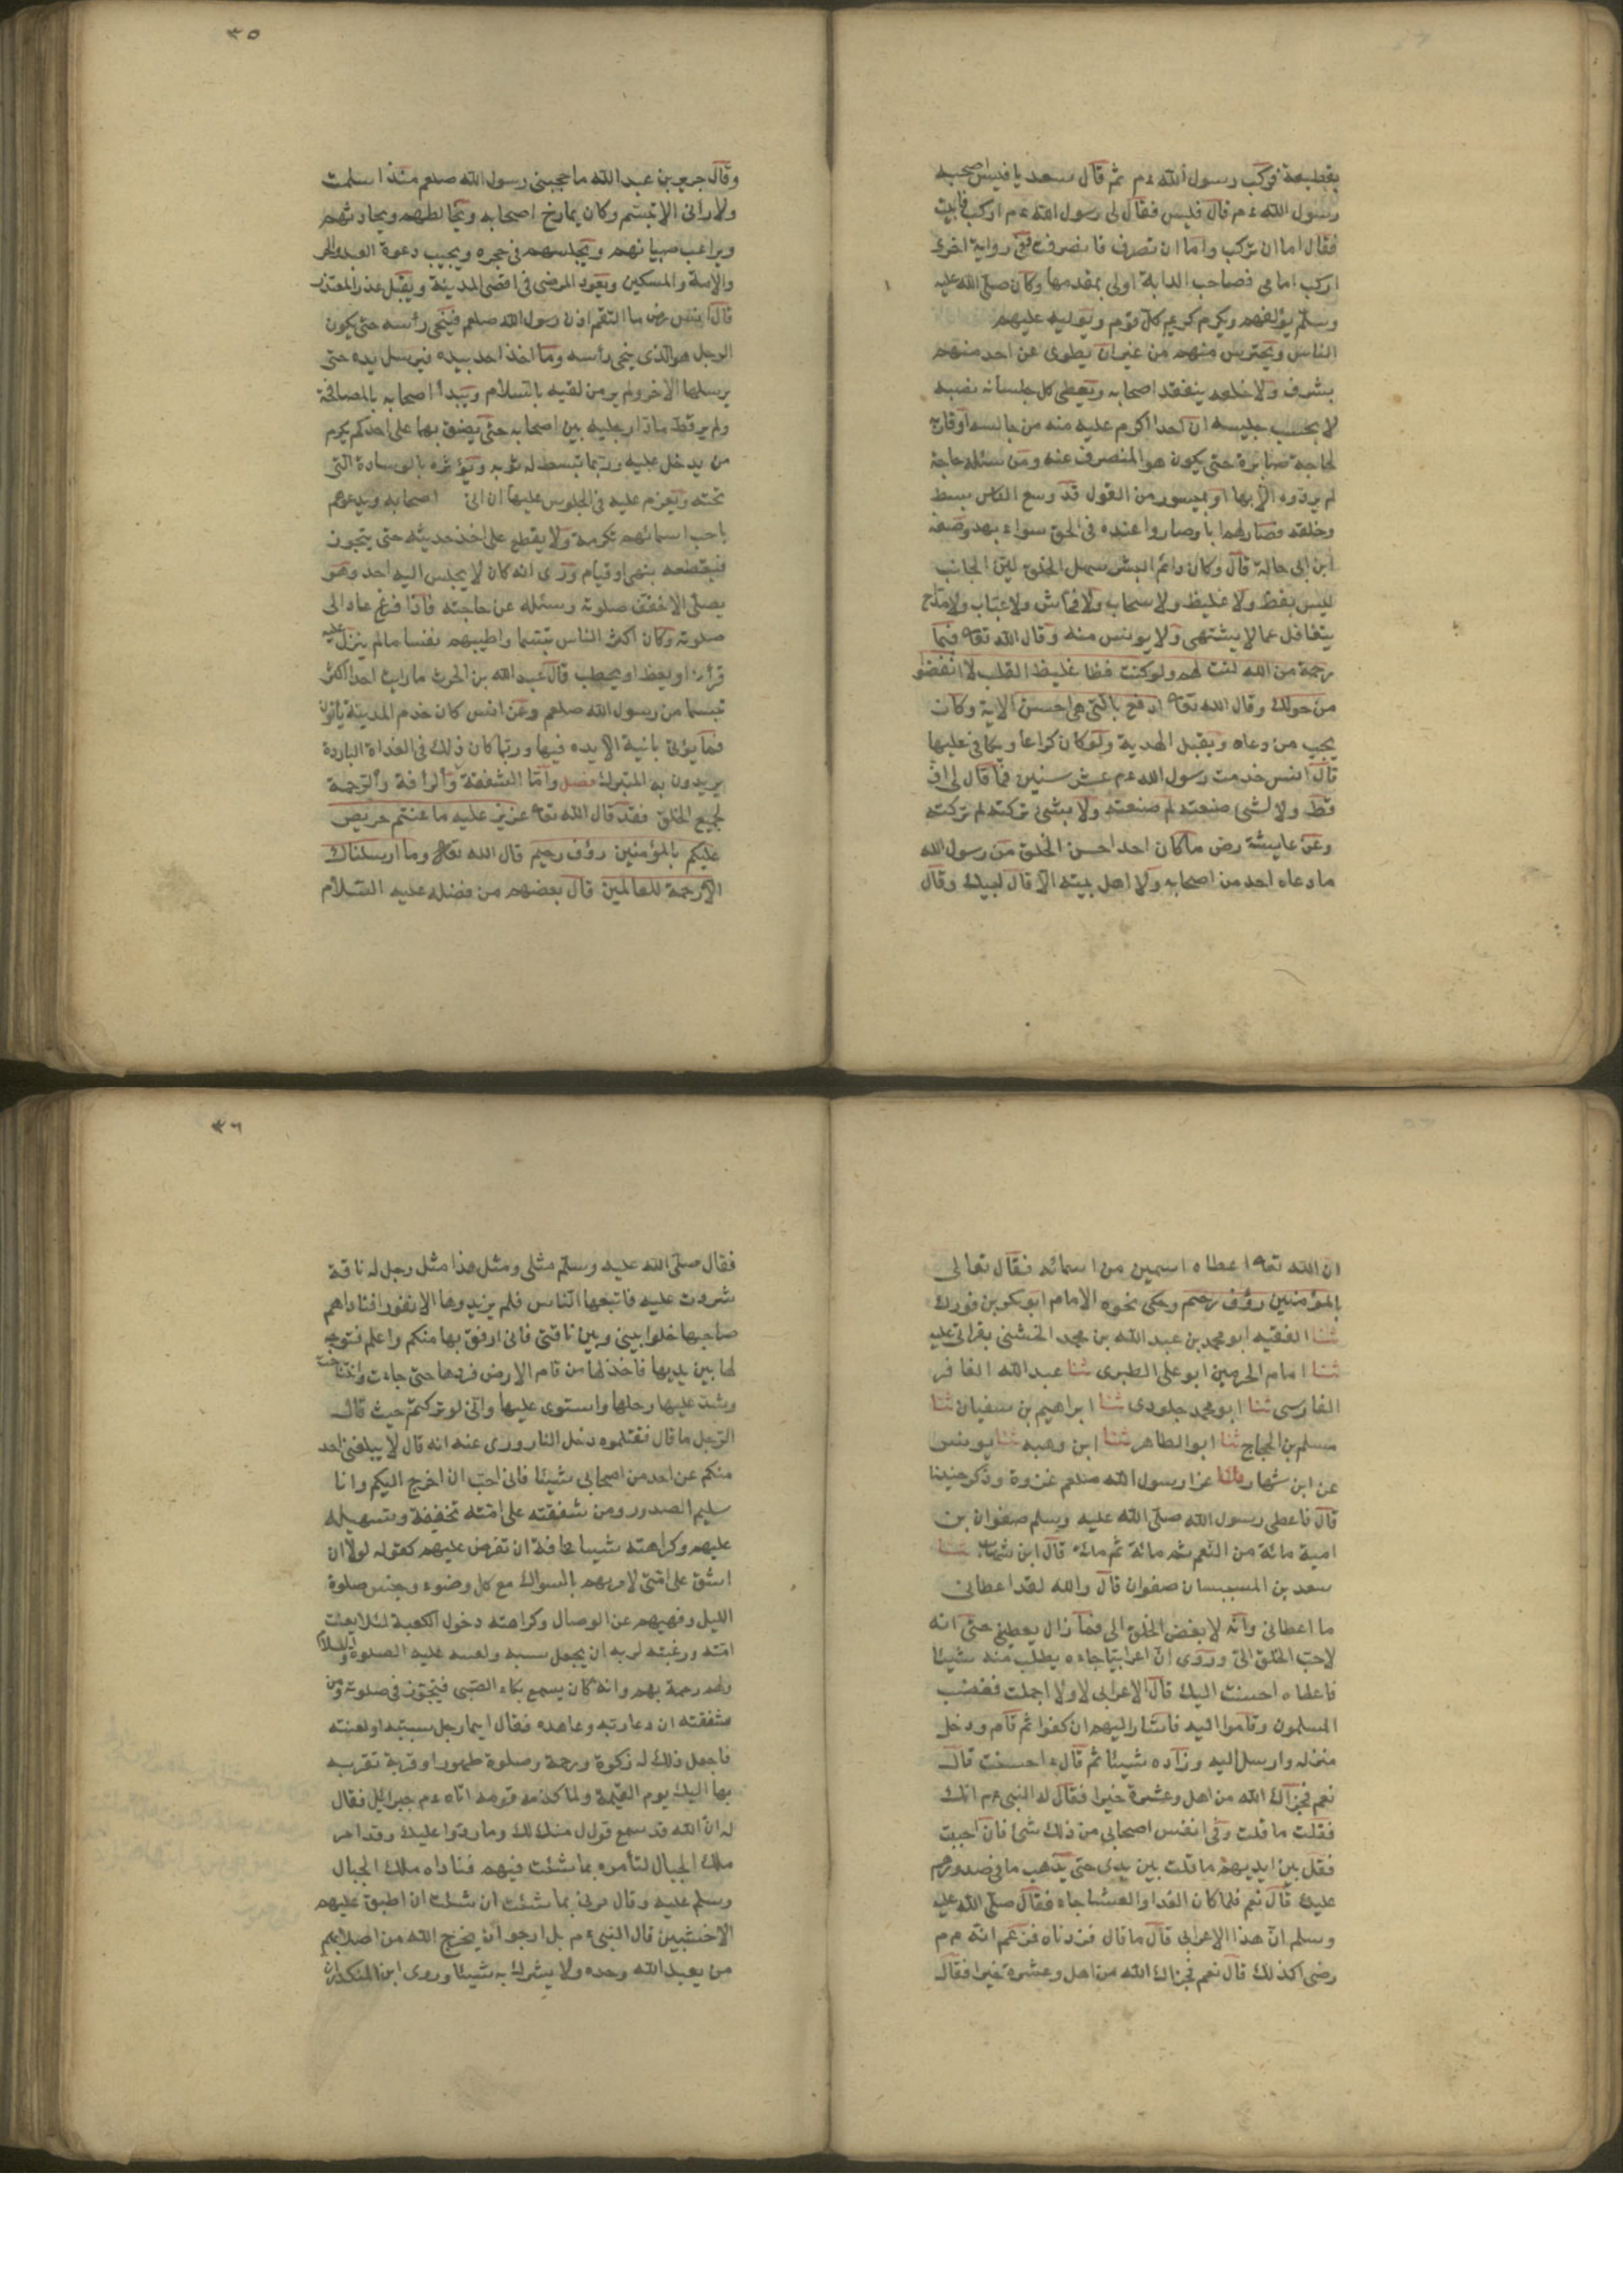 بقطيفة فركب رسول الله ءم ثم قال سعد يا قيس اصحب
رسول الله ءم قال قيس فقال لى رسول الله ءم اركب فابيت
فقال اما ان تركب واما ان تصرف فانصرفت وفى رواية اخرى
اركب امامى فصاحب الدابة اولى بمقدمها وكان صلى الله عليه
وسلم يؤلفهم ويكرم كريم كل قوم ويوليه عليهم
الناس ويحترس منهم من غير ان يطوى عن احد منهم
بشره ولا خلقه يتفقد اصحابه ويعطى كل جلسائه نصيبه
لا يحسب جليسه ان احدا اكرم عليه منه من جالسه او قاربه
لحاجة صابره حتى يكون هو المنصرف عنه ومن سئله حاجة
لم يرده الا بها او بميسور من القول قد وسع الناس بسطه
وخلقه فصار لهم ابا وصاروا عنده فى الحق سواء بهذ وصفه
ابن ابى هالة قال وكان دائم البشر سهل الخلق لين الجانب
ليس بفظ ولا غليظ ولا سخاب ولا فحاش ولا عياب ولا مداح
يتغافل عما لا يشتهى ولا يويس منه وقال الله تعا فبما
رحمة من الله لنت لهم ولو كنت فظا غليظ القلب لا انفضوا
من حولك وقال الله تعا ادفع بالتى هى احسن الاية وكان
يجيب من دعاه ويقبل الهدية ولو كان كراعا ويكافى عليها
قال انس خدمت رسول الله ءم عشر سنين فما قال لى اف
قط ولا لشئ صنعته لم صنعته ولا بشئ تركته لم تركته
وعن عايشة رض ما كان احد احسن الخلق من رسول الله
ما دعاه احد من اصحابه ولا اهل بيته الا قال لبيك وقال
٣٥
وقال جرير بن عبد الله ما حجبنى رسول الله صلعم منذ اسلمت
ولا رانى الا تبسم وكان يمازح اصحابه ويخالطهم ويحادثهم
ويراعب صبيانهم ويجلسهم فى حجره ويجيب دعوة العبد والحر
والامة والمسكين ويعود المرضى فى اقصى المدينة ويقبل عذر المعتذر
قال انس رض ما التقم اذن رسول الله صلعم فينحى رأسه حتى يكون
الرجل هو الذى ينحى رأسه وما اخذ احد بيده فيرسل يده حتى
يرسلها الاخر ولم ير من لقيه بالسلام ويبدأ اصحابه بالمصافحة
ولم ير قط مادا رجليه بين اصحابه حتى يضيق بهما على احدكم يكرم
من يدخل عليه وربما تبسط له ثوبه ويؤثره بالوسادة التى
تحته ويعزم عليه فى الجلوس عليها ان ابى اصحابه ويدعوهم
باحب اسمائهم تكرمة ولا يقطع على احد حديثه حتى يتجوز
فيقطعه بنهى او قيام وروى انه كان لا يجلس اليه احد وهو
يصلى الا خفف صلوته وسئله عن حاجته فاذا فرغ عاد الى
صلوته وكان اكثر الناس تبسما واطيبهم نفسا مالم ينزل عليه
قرآن او يعظ او يخطب قال عبد الله بن الحرث ما رايت احدا اكثر
تبسما من رسول الله صلعم وعن انس كان خدم المدينة يأتون
فما يؤتى بانية الا يده فيها وربما كان ذلك فى الغداة الباردة
يريدون به التبرك فصل واما الشفقة والرأفة والرحمة
لجميع الخلق فقد قال الله تعا عزيز عليه ما عنتم حريص
عليكم بالمؤمنين رؤف رحيم قال الله تعا وما ارسلناك
الا رحمة للعالمين قال بعضهم من فضله عليه السلام
ان الله تعا اعطاه اسمين من اسمائه فقال تعالى
بالمؤمنين رؤف رحيم وحكى نحوه الامام ابو بكر بن فورك
ثنا الفقيه ابو محمد بن عبد الله بن محمد الخشنى بقراتى عليه
ثنا امام الحرمين ابو على الطبرى ثنا عبد الله الغافر
الفارسى ثنا ابو محمد جلودى ثنا ابراهيم بن سفيان ثنا
مسلم بن الحجاج ثنا ابو الطاهر ثنا ابن وهب ثنا يونس
عن ابن شهاب قال غزا رسول الله صلعم غزوة وذكر حنينا
قال فاعطى رسول الله صلى الله عليه وسلم صفوان بن
امية مائة من النعم ثم مائة ثم مائة قال ابن شهاب ثنا
سعد بن المسيب ان صفوان قال والله لقد اعطانى
ما اعطانى وانه لا بغض الخلق الى فما زال يعطينى حتى انه
لاحب الخلق الى وروى ان اعرابيا جاءه يطلب منه شيئا
فاعطاه احسنت اليك قال الاعرابى لا ولا اجملت فغضب
المسلمون وقاموا اليه فاشار اليهم ان كفوا ثم قام ودخل
منزله وارسل اليه وزاده شيئا ثم قال ءاحسنت قال
نعم فجزاك الله من اهل وعشيرة خيرا فقال له النبى ءم انك
فقلت ما قلت وفى انفس اصحابى من ذلك شئ فان احببت
فقل بين ايديهم ما قلت بين يدى حتى يذهب ما فى صدورهم
عليك قال نعم فلما كان الغد او العشا جاء فقال صلى الله عليه
وسلم ان هذا الاعرابى قال ما قال فزدناه فزعم انه ءم
رضى اكذلك قال نعم فجزاك الله من اهل وعشيرة خيرا فقال
٣٦
فقال صلى الله عليه وسلم مثلى ومثل هذا مثل رجل له ناقة
شردت عليه فاتبعها الناس فلم يزيدوها الا نفورا فناداهم
صاحبها خلوا بينى وبين ناقتى فانى ارفق بها منكم واعلم فتوجه
لها بين يديها فاخذ لها من قام الارض فردها حتى جاءت وانتنا
وشد عليها رحلها واستوى عليها وانى لو تركتم حيث قال
الرجل ما قال فقتلتموه دخل النار وروى عنه انه قال لا يبلغنى احد
منكم عن احد من اصحابى شيئا فانى احب ان اخرج اليكم وانا
سليم الصدور ومن شفقته على امته تخفيفه وتسهيله
عليهم وكراهته شيئا مخافة ان تفرض عليهم كقوله لولا ان
اشق على امتى لامرتهم بالسواك مع كل وضوء وبجنس صلوة
الليل ونهيهم عن الوصال وكراهته دخول الكعبة لئلا يعنت
امته ورغبته لربه ان يجعل سبه ولعنه عليه الصلوة والسلام
لهم رحمة بهم وانه كان يسمع بكاء الصبى فيتجوز فى صلوته ومن
شفقته ان دعا ربه وعاهده فقال ايما رجل سببته او لعنته
فاجعل ذلك له زكوة ورحمة وصلوة طهورا وقربة تقربه
بها اليك يوم القيمة ولما كذبه قومه اتاه ءم جبرائل فقال
له ان الله قد سمع قول منك لك وما ردوا عليك وقد امر
ملك الجبال لتأمره بما شئت فيهم فناداه ملك الجبال
وسلم عليه وقال مرنى بما شئت ان شئت ان اطبق عليهم
الاخشبين قال النبى ءم بل ارجو ان يخرج الله من اصلابهم
من يعبد الله وحده ولا يشرك به شيئا وروى ابن المنكدر ان